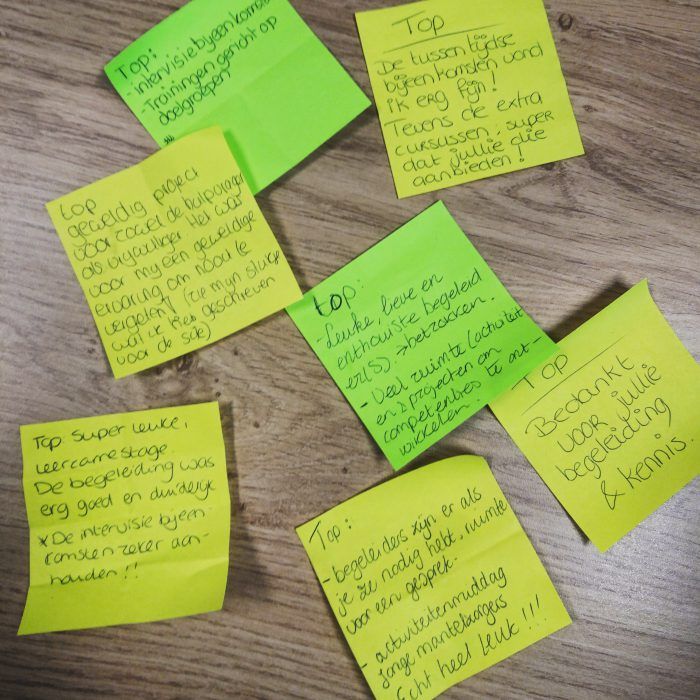 Top:
- intervisie bijeenkomsten
- Trainingen gericht op
doelgroepen
Top
De tussentijdse
bijeenkomsten vond
ik erg fijn!
Tevens de extra
cursussen, super
dat jullie die
aanbieden!
top
geweldig project
voor zowel de hulpvrager
als vrijwilliger. Het was
voor mij een geweldige
ervaring om nooit te
vergeten! (zie mijn stukje
wat ik heb geschreven
voor de site)
top:
- Leuke, lieve en
enthousiaste begeleid
er(s). → betrokken.
- Veel ruimte (activiteit
en 2 projecten om
competenties te ont-
wikkelen.
Top
Bedankt
voor jullie
begeleiding
& kennis
Top super leuke,
leerzame stage.
De begeleiding was
erg goed en duidelijk
* De intervisie bijeen-
komsten zeker aan-
houden!!
Top:
- begeleiders zijn er als
je ze nodig hebt, ruimte
voor een gesprek.
- activiteitenmiddag
jonge mantelzorgers
Echt heel leuk!!!